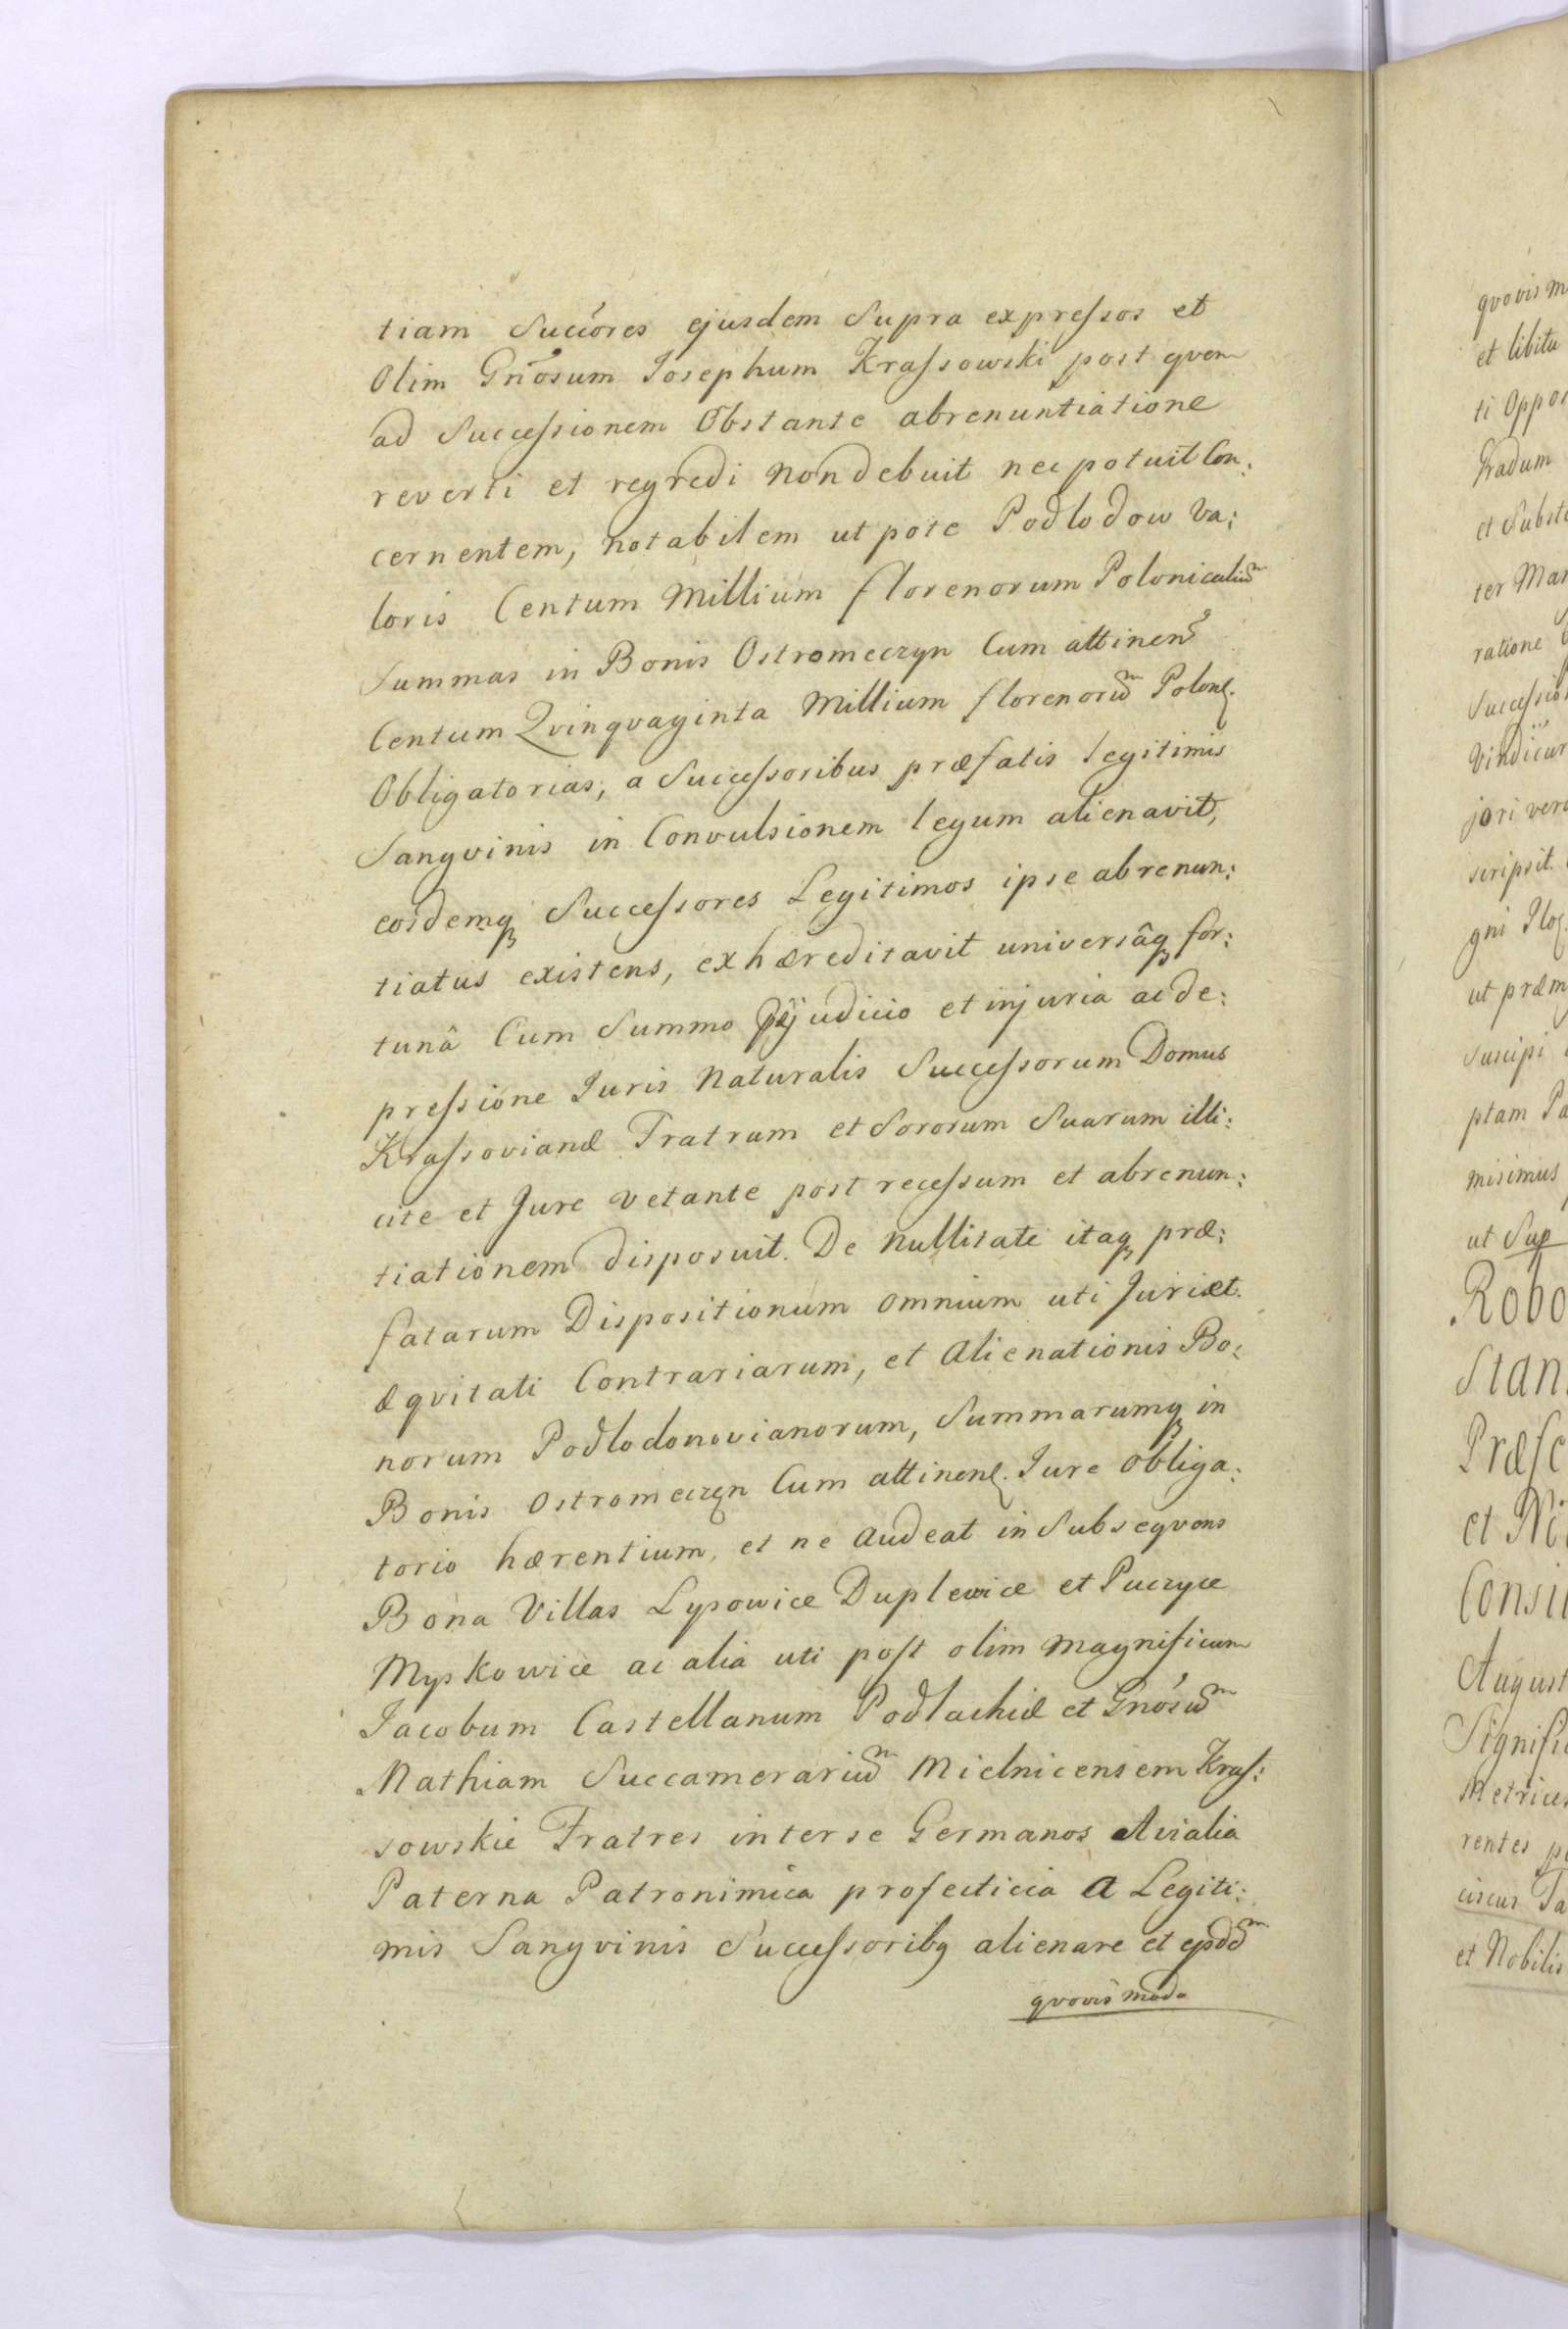 tiam Succóres ejusdem Supra expreſsos et
Olim Gnosum Josephum Kraſsowski post qvem
ad Succeſsionem Obstante abrenuntiatione
reverti et regredi non debuit nec potuit Con:
cernentem, notabilem ut pote Podlodow Va:
loris Centum Millium florenorum Polonicaliũ
Summas in Bonis Ostromeczyn Cum attinen
Centum Qvinqvaginta Millium florenorũ Polonę.
Obligatorias, a Succeſsoribus præfatis legitimis
Sangvinis in Convulsionem legum alienavit,
eosdemq Succeſsores Legitimos ipse abrenun:
tiatus existens, exhæreditavit universâq for:
tunâ Cum Summo Pjudicio et injuria ac de:
preſsione Juris Naturalis Succeſsorum Domus
Kraſsovianæ Fratrum et Sororum Suarum illi:
cite et Jure vetante post receſsum et abrenun:
tiationem disposuit. De Nullitate itaq præ:
fatarum Dispositionum omnium uti Juri et
æqvitati Contrariarum, et Alienationis Bo:
norum Podlodonovianorum, Summarumq in
Bonis Ostromeczyn Cum attinenę. Jure obliga:
torio hærentium, et ne audeat in Subseqvens
Bona Villas Lysowice Duplewice et Puczyce
Myskowice ac alia uti poſt olim Magnificum
Jacobum Castellanum Podlachiæ et Gnósũ
Mathiam Succamerariũ Mielnicensem Kraſ:
sowskie Fratres inter se Germanos Avialia
Paterna Patronimica profecticia a Legiti:
mis Sangvinis Succeſsoribq alienare et ejsdd
qvovis modo

qvovis m
et libitu
ti Oppo
Gradum
et Subst
ter Man
ratione
Succeſsio
Vindicar
jori vero
scripsit.
gni
ut præm
Suscipi
ptam Pa
misimus
ut Sup
Robo
Stan
Præfe
et Ni
Consi
August
Signifi
Metrices
rentes
ciscus
et Nobilis